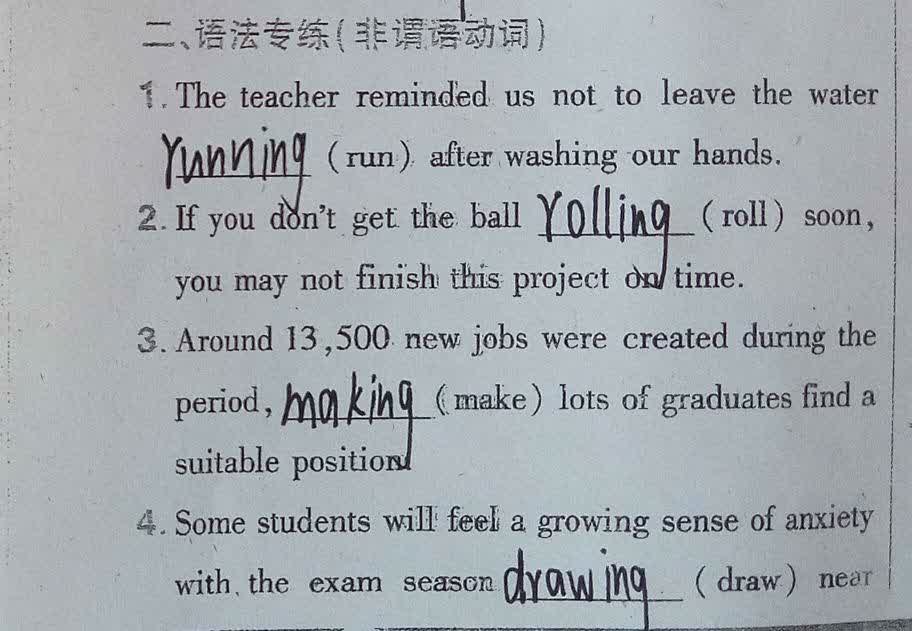 二、语法专练(非谓语动词)
1. The teacher reminded us not to leave the water
running (run) after washing our hands.
2. If you don't get the ball rolling (roll) soon,
you may not finish this project on time.
3. Around 13,500 new jobs were created during the
period, making (make) lots of graduates find a
suitable position
4. Some students will feel a growing sense of anxiety
with the exam season drawing (draw) near